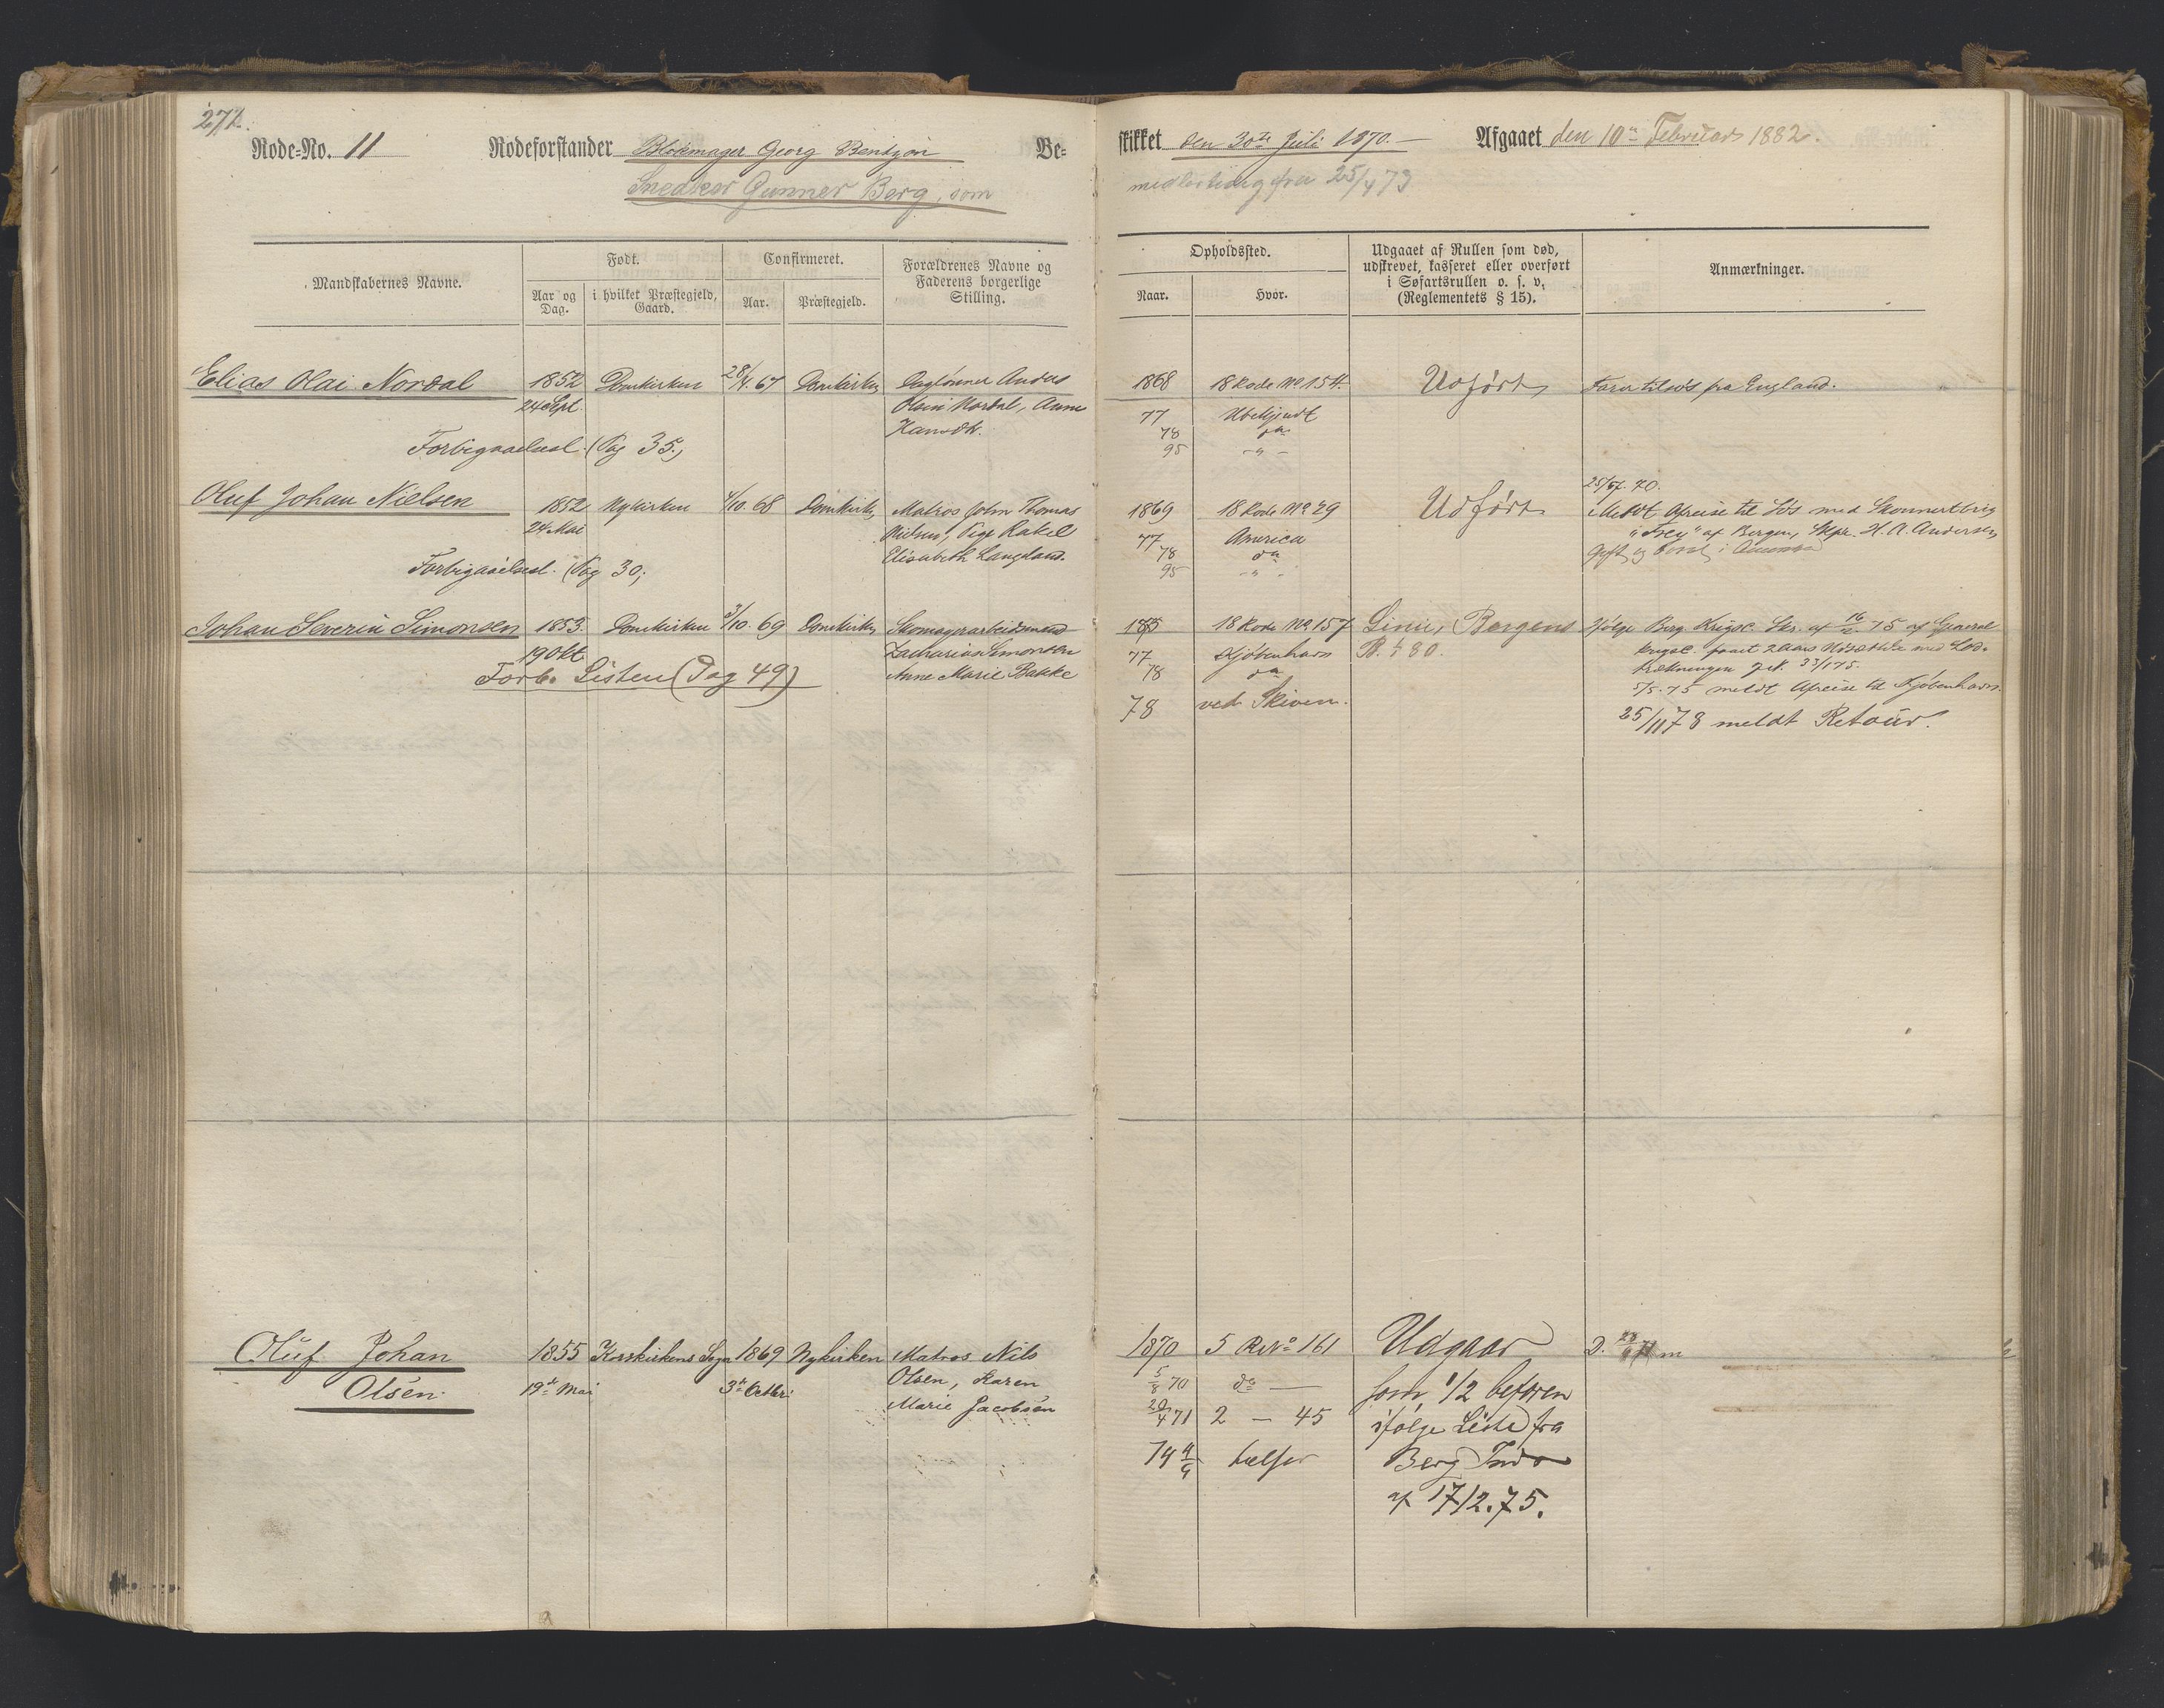 272.
Rode-No. 11 Rodeforstander Blokmager Georg Bentzon Be-
Snedker Gunner Berg, som
skikket den 30te Juli 1870. — Afgaaet den 10de Februar 1882.
midlertidig fra 25/4 73
Mandskabernes Navne.
Født.
Aar og Dag.
i hvilket Præstegjeld, Gaard.
Confirmeret.
Aar.
Præstegjeld.
Forældrenes Navne og
Faderens borgerlige
Stilling.
Opholdssted.
Naar.
Hvor.
Udgaaet af Rullen som død,
udskrevet, kasseret eller overført
i Søfartsrullen o. s. v.
(Reglementets § 15).
Anmærkninger.
Elias Olai Nordal 1852 Domkirken 28/4. 67 Domkirken Daglønner Anders 1868 18 Rode No 154. Udført Farer tilsøs fra England.
24 Sept. Olsen Nordal, Anne 77 Ubekjendt
Hansdtr. 78 do
Forbigaaelsesl. (Pag 35.) 95 - " -
25/7. 70.
Oluf Johan Nielsen 1852 Nykirken 4/10. 68 Domkirken Matros John Thomas 1869 18 Rode No 29 Udført Meldt Afreise til Søs med Skonnertbrig
24 Mai Nielsen, Pige Rakel 77 America "Frey" af Bergen, Skpr. H. A. Andersen
Elisabeth Langeland. 78 do Gift og bosat i America
Forbigaaelsesl. (Pag 30; 95 - " -
Johan Severin Simonsen 1853. Domkirken 3/10. 69 Domkirken Skomagerarbeidsmand 18 Rode No 157 Linie, Bergens Ifølge Berg. Krigsc. Skr. af 16/2 75 af General
19 Okt Zacharias Simonsen 77 Kjøbenhavn B. 480. krigsc. faaet 2 Aars Udsættelse med Lod-
Forb. Listen (Pag 49) Anne Marie Bakke 78 do trækningen
5/5. 75 meldt Afreise til Kjøbenhavn.
78 ved Skiven. 25/11 78 meldt Retour.
Oluf Johan 1855 Korskirkens Sogn 1869 Nykirken Matros Nils 1870 5 R No 161 Udgaar
Olsen. 19de Mai 3de Octbr. Olsen, Karen 5/8 70 do — som 1/2 befaren
Marie Jacobsen 20/4 71 2 — 45 ifølge Liste fra
74 4/9 tilsøs Berg
af 17/2. 75.